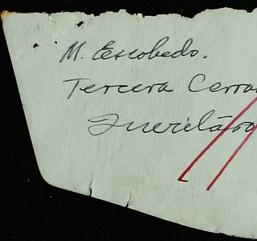 M. Escobedo.
Tercera Cerra
Querétaro